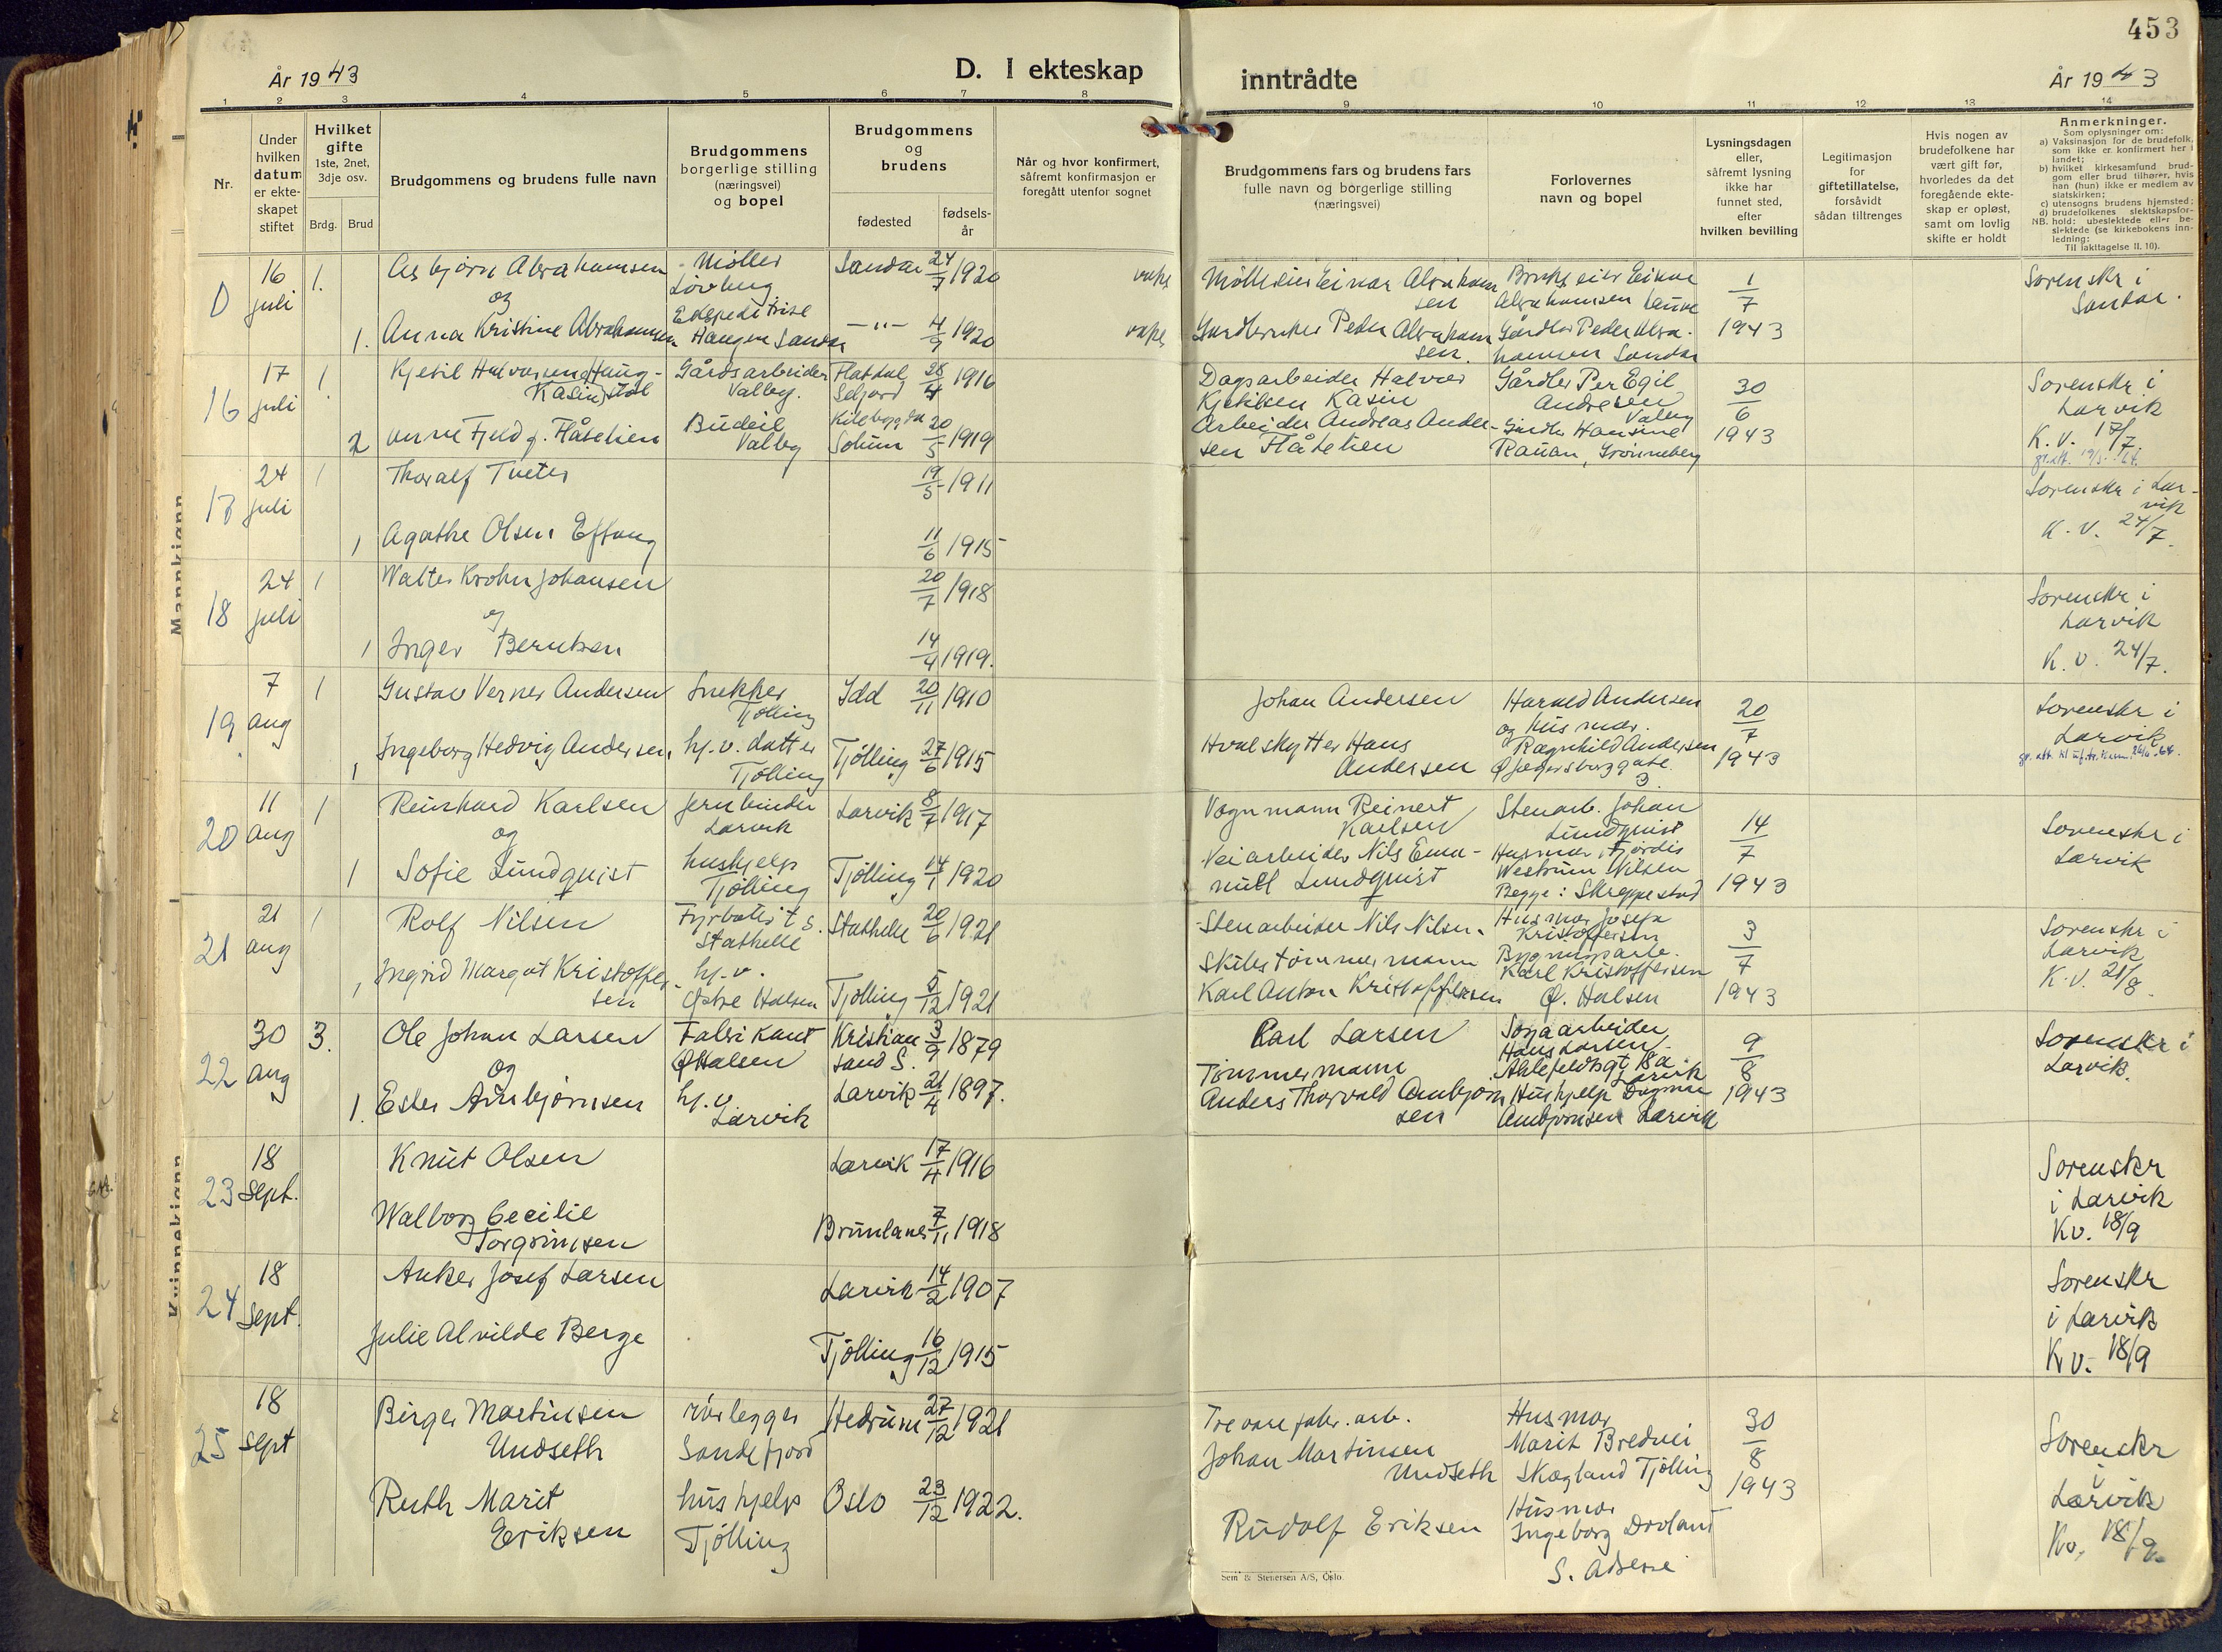 453
År 1943
D. I ekteskap
inntrådte
År 1943
1 2 3 4 5 6 7 8 9 10 11 12 13 14
Nr.
Under
hvilken
datum
er ekte-
skapet
stiftet
Hvilket
gifte
1ste, 2net,
3dje osv.
Brdg. Brud
Brudgommens og brudens fulle navn
Brudgommens
borgerlige stilling
(næringsvei)
og bopel
Brudgommens
og
brudens
fødested
fødsels-
år
Når og hvor konfirmert,
såfremt konfirmasjon er
foregått utenfor sognet
Brudgommens fars og brudens fars
fulle navn og borgerlige stilling
(næringsvei)
Forlovernes
navn og bopel
Lysningsdagen
eller,
såfremt lysning
ikke har
funnet sted,
efter
hvilken bevilling
Legitimasjon
for
giftetillatelse,
forsåvidt
sådan tiltrenges
Hvis nogen av
brudefolkene har
vært gift før,
hvorledes da det
foregående ekte-
skap er opløst,
samt om lovlig
skifte er holdt
Anmerkninger.
Som oplysninger om:
a) Vaksinasjon for de brudefolk,
som ikke er konfirmert her i
landet;
b) hvilket kirkesamfund brud-
gom eller brud tilhører, hvis
han (hun) ikke er medlem av
statskirken;
c) utensogns brudens hjemsted;
d) brudefolkenes slektskapsfor-
NB. hold: ubeslektede eller be-
slektede (se kirkebokens inn-
ledning:
Til iakttagelse II. 10).
0
16
juli
1.
Asbjørn Abrahamsen
og
Møller
Løvberg
Sandar 24/7 1920
vaks
Mölleeier Einar Abraham
sen
Brukseier Einar
Abrahamsen
1/7
1943
Sorenskr i
Sandar.
1. Anna Kristine Abrahamsen
Ekspeditrise
Haugen Sandar
-"- 4/9 1920
vaks
Gårdbruker Peder Abraham
sen.
Gårdbr Peder Abra-
hamsen Sandar
16
17
juli
1
Kjetil Halvorsen Haug-
Kasin støl
Gårdsarbeider
Valby.
Flatdal
Seljord
28/4 1916
Dagsarbeider Halvor
Kjetilsen Kasin
Gårdbr Per Egil
Andresen
Valby
30/6
1943
Sorenskr i
Larvik
K.V. 17/7.
2 Anne Fjeld g. Flåtelien
Budeie
Valby
Solum
20/5 1919
Arbeider Andreas Ander-
sen Flåtelien
Gårdbr Hansine
Rauan, Grönneberg
17
24
juli
1
Thoralf Tveter
19/5 1911
Sorenskr i Lar-
vik
K.V. 24/7.
1 Agathe Olsen Eftang
11/6 1915
18
24
juli
1
Walter Krohn Johansen
og
20/7 1918
Sorenskr i
Larvik
K.V. 24/7.
1 Inger Berntsen
14/9 1919.
19
7
aug
1
Gustav Verner Andersen
Snekker
Tjölling
Idd 20/11 1910
Johan Andersen
Harald Andersen
og husmor
20/7
1943
Sorenskr i
Larvik
1 Ingeborg Hedvig Andersen
hj.v. datter
Tjölling
Tjölling 27/6 1915
Hvalskytter Hans
Andersen
Ragnhild Andersen
Øjegersborggate
3
20
11
aug
1
Reinhard Karlsen
og
Jernbinder
Larvik
Larvik 8/7 1917
Vognmann Reinert
Karlsen
Stenarb. Johan
Lundquist
14/7
1943
Sorenskr i
Larvik
1 Sofie Lundquist
hushjelp
Tjölling
Tjölling 14/1 1920
Veiarbeider Nils Ema-
nuel Lundquist
Husmor Hjördis
Westrum Nilsen
Begge: Skreppestad
21
21
aug
1
Rolf Nilsen
Fyrböter t.s.
Stathelle
Stathelle 20/6 1921
Stenarbeider Nils Nilsen
Husmor Josefa
Kristoffersen
3/7
1943
Sorenskr i
Larvik
K.V. 21/8.
1 Ingrid Margot Kristoffer-
sen
hj.v.
Østre Halsen
Tjölling 5/12 1921
Skibstömmermann
Karl Anton Kristoffersen
Bygningsarb.
Karl Kristoffersen
Ø. Halsen
22
30
aug
3.
Ole Johan Larsen
og
Fabrikant
Ø Halsen
Kristian
sand S.
3/9 1879
Karl Larsen
Soyaarbeider
Hans Larsen
Ahlefeldtsgt 18a
Larvik
9/8
1943
Sorenskr i
Larvik.
1. Ester Ambjørnsen
hj.v.
Larvik
Larvik 21/4 1897.
Tömmermann
Anders Thorvald Ambjörn
sen
Hushjelp Dagmar
Ambjörnsen Larvik
23
18
sept.
Knut Olsen
Larvik 17/4 1916
Sorenskr
i Larvik
Kv. 18/9
Walborg Cecilie
Torgrimsen
Brunlanes 7/11 1918
24
18
sept.
Anker Josef Larsen
Larvik 14/2 1907
Sorenskr
i Larvik
Kv. 18/9
Julie Alvilde Berge
Tjölling 16/12 1915
25
18
sept
Birger Martinsen
Undseth
rörlegger
Sandefjord
Hedrum 27/12 1921
Trevarefabr. arb.
Johan Martinsen
Undseth
Husmor
Marit Bredvei
Skogland Tjölling
30/8
1943
Sorenskr
i
Larvik
Kv. 18/9.
Ruth Marit
Eriksen
hushjelp
Tjölling
Oslo 23/12 1922.
Rudolf Eriksen
Husmor
Ingeborg
S. Adresse
Sem & Stenersen A/S, Oslo.
Mannkjønn
Kvinnekjønn